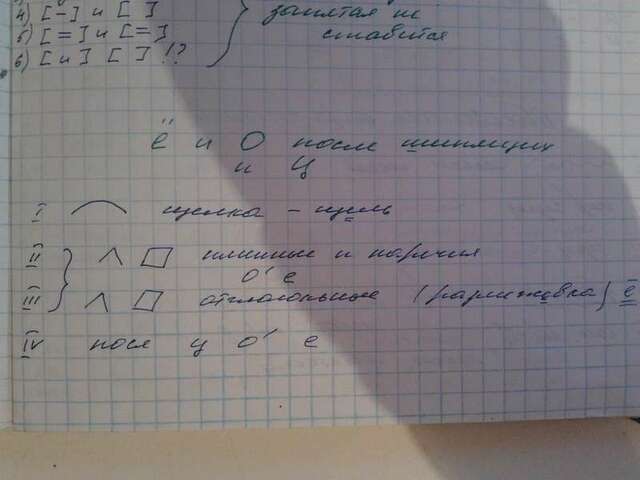 4) [–] и [ ] запятая не
5) [=] и [=] ставится
6) [и] [ ] !?
ё и О после шипящих
и Ц
I щелка – щель
II именные и наречия
о' е
III отглагольные (размежовка) ё
IV посл ц о' е